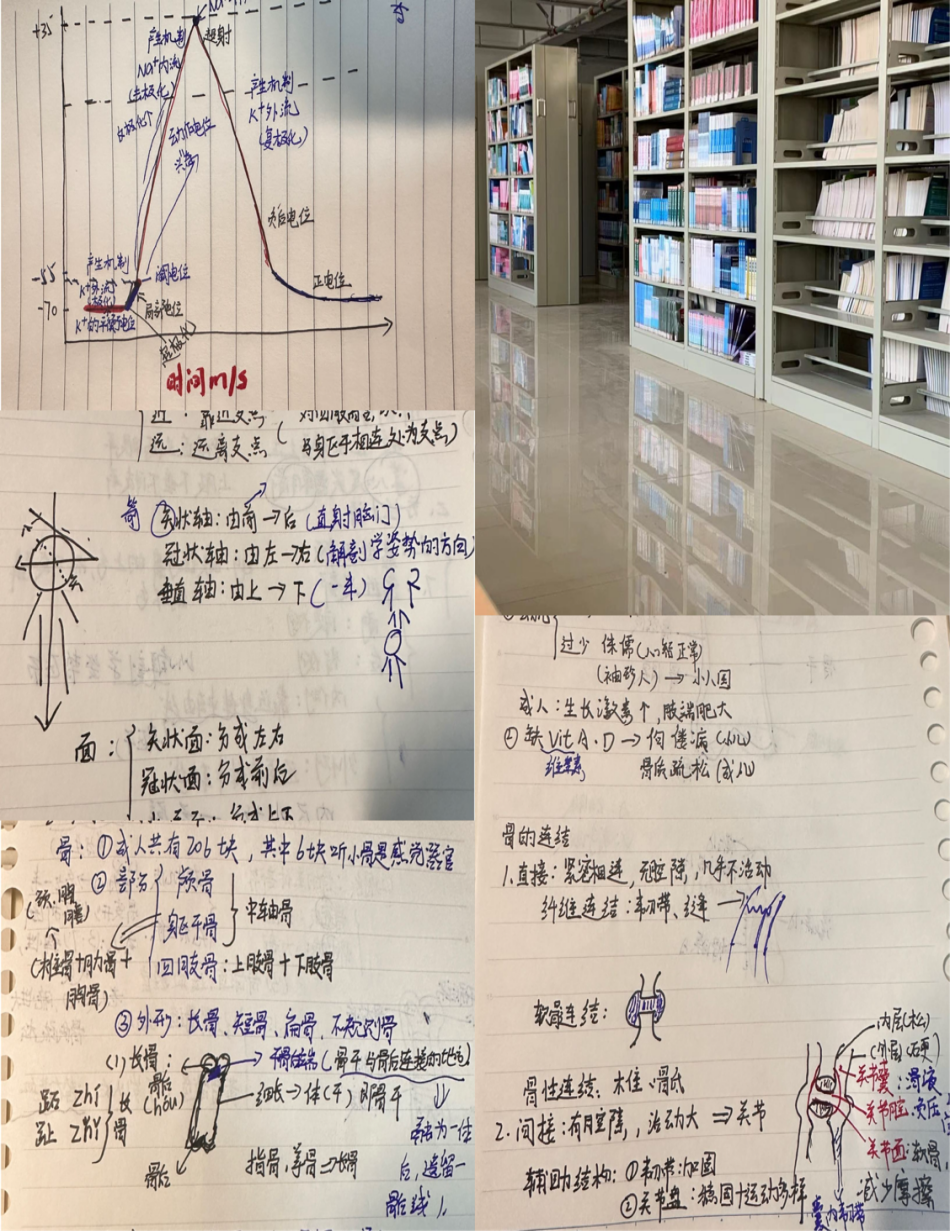 +35
超射
产生机制
Na+内流
(去极化)
动作电位
产生机制
K+外流
(复极化)
负后电位
正电位
-55
产生机制
阈电位
K+外流
(极化)
局部电位
-70
K+的平衡电位
时间m/s
近:靠近支点
远:远离支点
与身區干相连处为支点)
矢状轴:由前→后(直射脑门)
冠状轴:由左→右(解剖学姿势的方向)
垂直轴:由上→下(
面:
矢状面:分成左右
冠状面:分成前后
骨:①成人共有206块,其中6块听小骨是感觉器官
②部分
颅骨
躯干骨
中轴骨
(颈、胸
腰)
(椎骨+肋骨+
胸骨)
四肢骨:上肢骨+下肢骨
③外形:长骨、短骨、扁骨、不规则骨
(1)长骨:
骨后
(hóu)
干骨后端(骨干与骨后连接的地方)
细长→体(干)即骨干
跖 Zhí
趾 Zhǐ
长
骨
成为一体
后,遗留一
骨后线)
骨后
指骨、掌骨→长骨
过少 侏儒(心智正常)
(袖珍人)→小人国
成人:生长激素个,肢端肥大
④缺Vit A·D→佝偻病(小儿)
维生素
骨质疏松(成人)
骨的连结
1.直接:紧密相连,无腔隙,几乎不活动
纤维连结:韧带、缝
软骨连结:
骨性连结:
2.间接:有腔隙,活动大⇒关节
辅助结构:①韧带:加固
②关节盘:稳固+运动多样
内层(松)
(外层)(硬)
关节囊:滑液
关节腔:负压
关节面:软骨
减少摩擦
囊内韧带